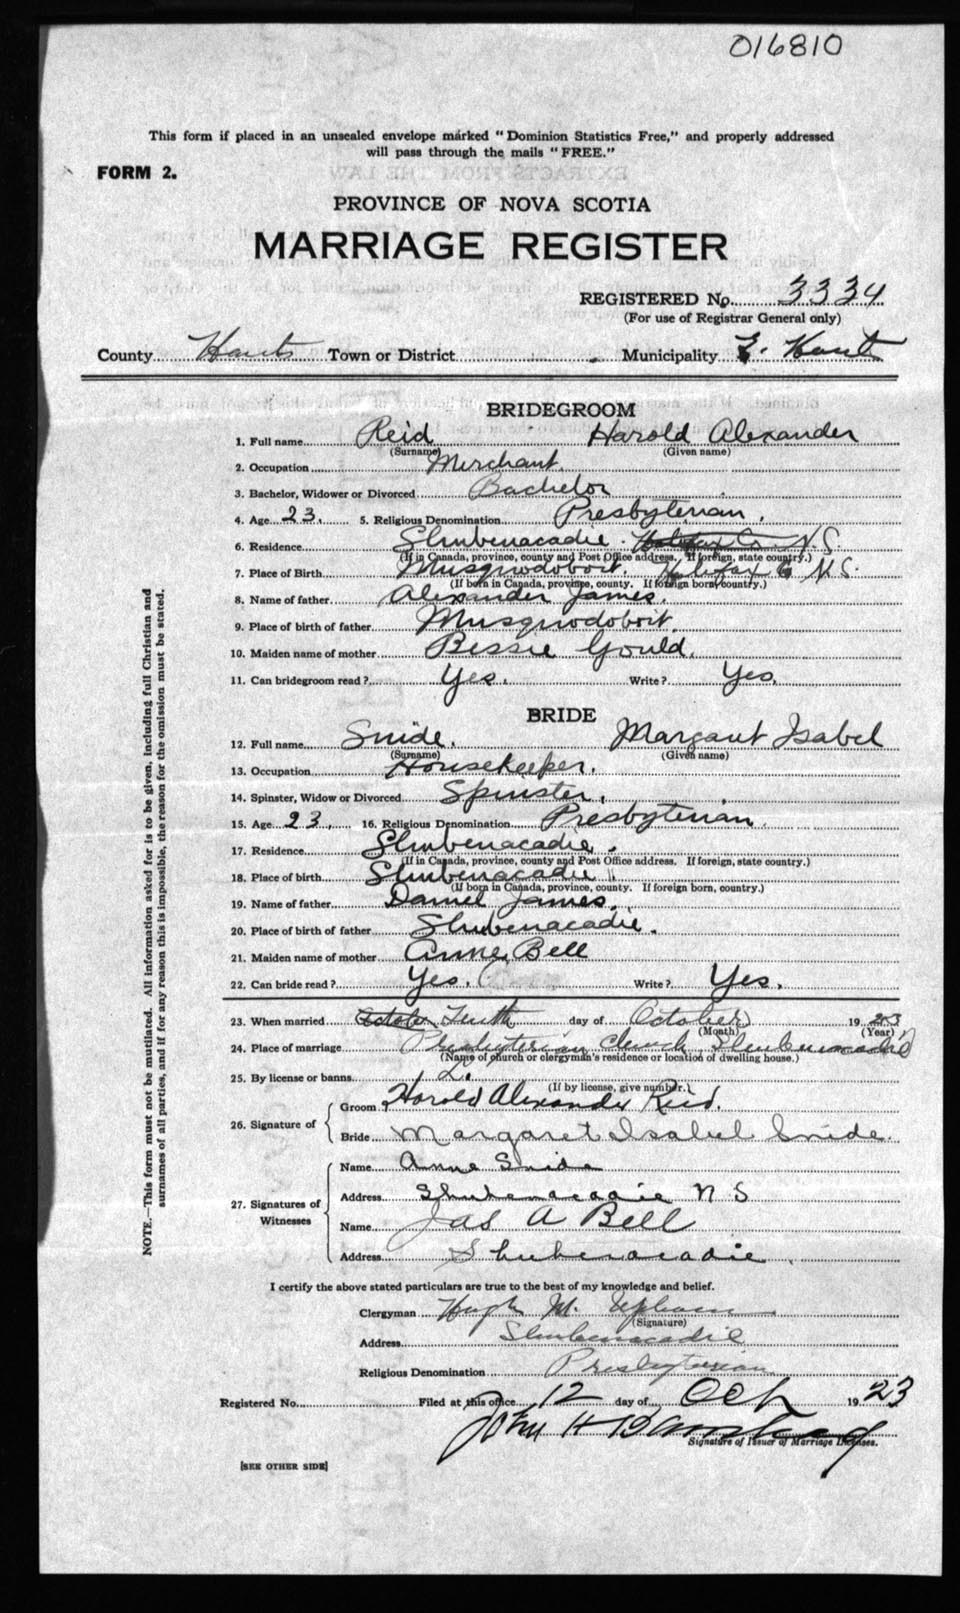 016810
This form if placed in an unsealed envelope marked "Dominion Statistics Free," and properly addressed
will pass through the mails "FREE."
FORM 2.
PROVINCE OF NOVA SCOTIA
MARRIAGE REGISTER
REGISTERED No. 3334
(For use of Registrar General only)
County Hants Town or District Municipality E. Hants
BRIDEGROOM
1. Full name Reid Harold Alexander
(Surname) (Given name)
2. Occupation Merchant.
3. Bachelor, Widower or Divorced Bachelor
4. Age 23. 5. Religious Denomination Presbyterian.
6. Residence Shubenacadie. Halifax Co N.S.
(If in Canada, province, county and Post Office address. If foreign, state country.)
7. Place of Birth Musquodoboit. Halifax Co N.S.
(If born in Canada, province, county. If foreign born, country.)
8. Name of father Alexander James.
9. Place of birth of father Musquodoboit.
10. Maiden name of mother Bessie Gould.
11. Can bridegroom read? Yes. Write? Yes.
BRIDE
12. Full name Snide. Margaret Isabel
(Surname) (Given name)
13. Occupation Housekeeper.
14. Spinster, Widow or Divorced Spinster.
15. Age 23. 16. Religious Denomination Presbyterian.
17. Residence Shubenacadie.
(If in Canada, province, county and Post Office address. If foreign, state country.)
18. Place of birth Shubenacadie "
(If born in Canada, province, county. If foreign born, country.)
19. Name of father Daniel James.
20. Place of birth of father Shubenacadie.
21. Maiden name of mother Anne Bell
22. Can bride read? Yes. Write? Yes.
23. When married October Tenth day of October 1923
(Month) (Year)
24. Place of marriage Presbyterian Church Shubenacadie
(Name of church or clergyman's residence or location of dwelling house.)
25. By license or banns L.
(If by license, give number.)
26. Signature of Groom Harold Alexander Reid.
Bride Margaret Isabel Snide.
27. Signatures of Witnesses Name Anne Snide
Address Shubenacadie N S
Name Jas A Bell
Address Shubenacadie
I certify the above stated particulars are true to the best of my knowledge and belief.
Clergyman Hugh M. Upham
(Signature)
Address Shubenacadie
Religious Denomination Presbyterian
Registered No. Filed at this office 12 day of Oct 1923
John H
Signature of Issuer of Marriage Licenses.
[SEE OTHER SIDE]
NOTE.—This form must not be mutilated. All information asked for is to be given, including full Christian and
surnames of all parties, and if for any reason this is impossible, the reason for the omission must be stated.